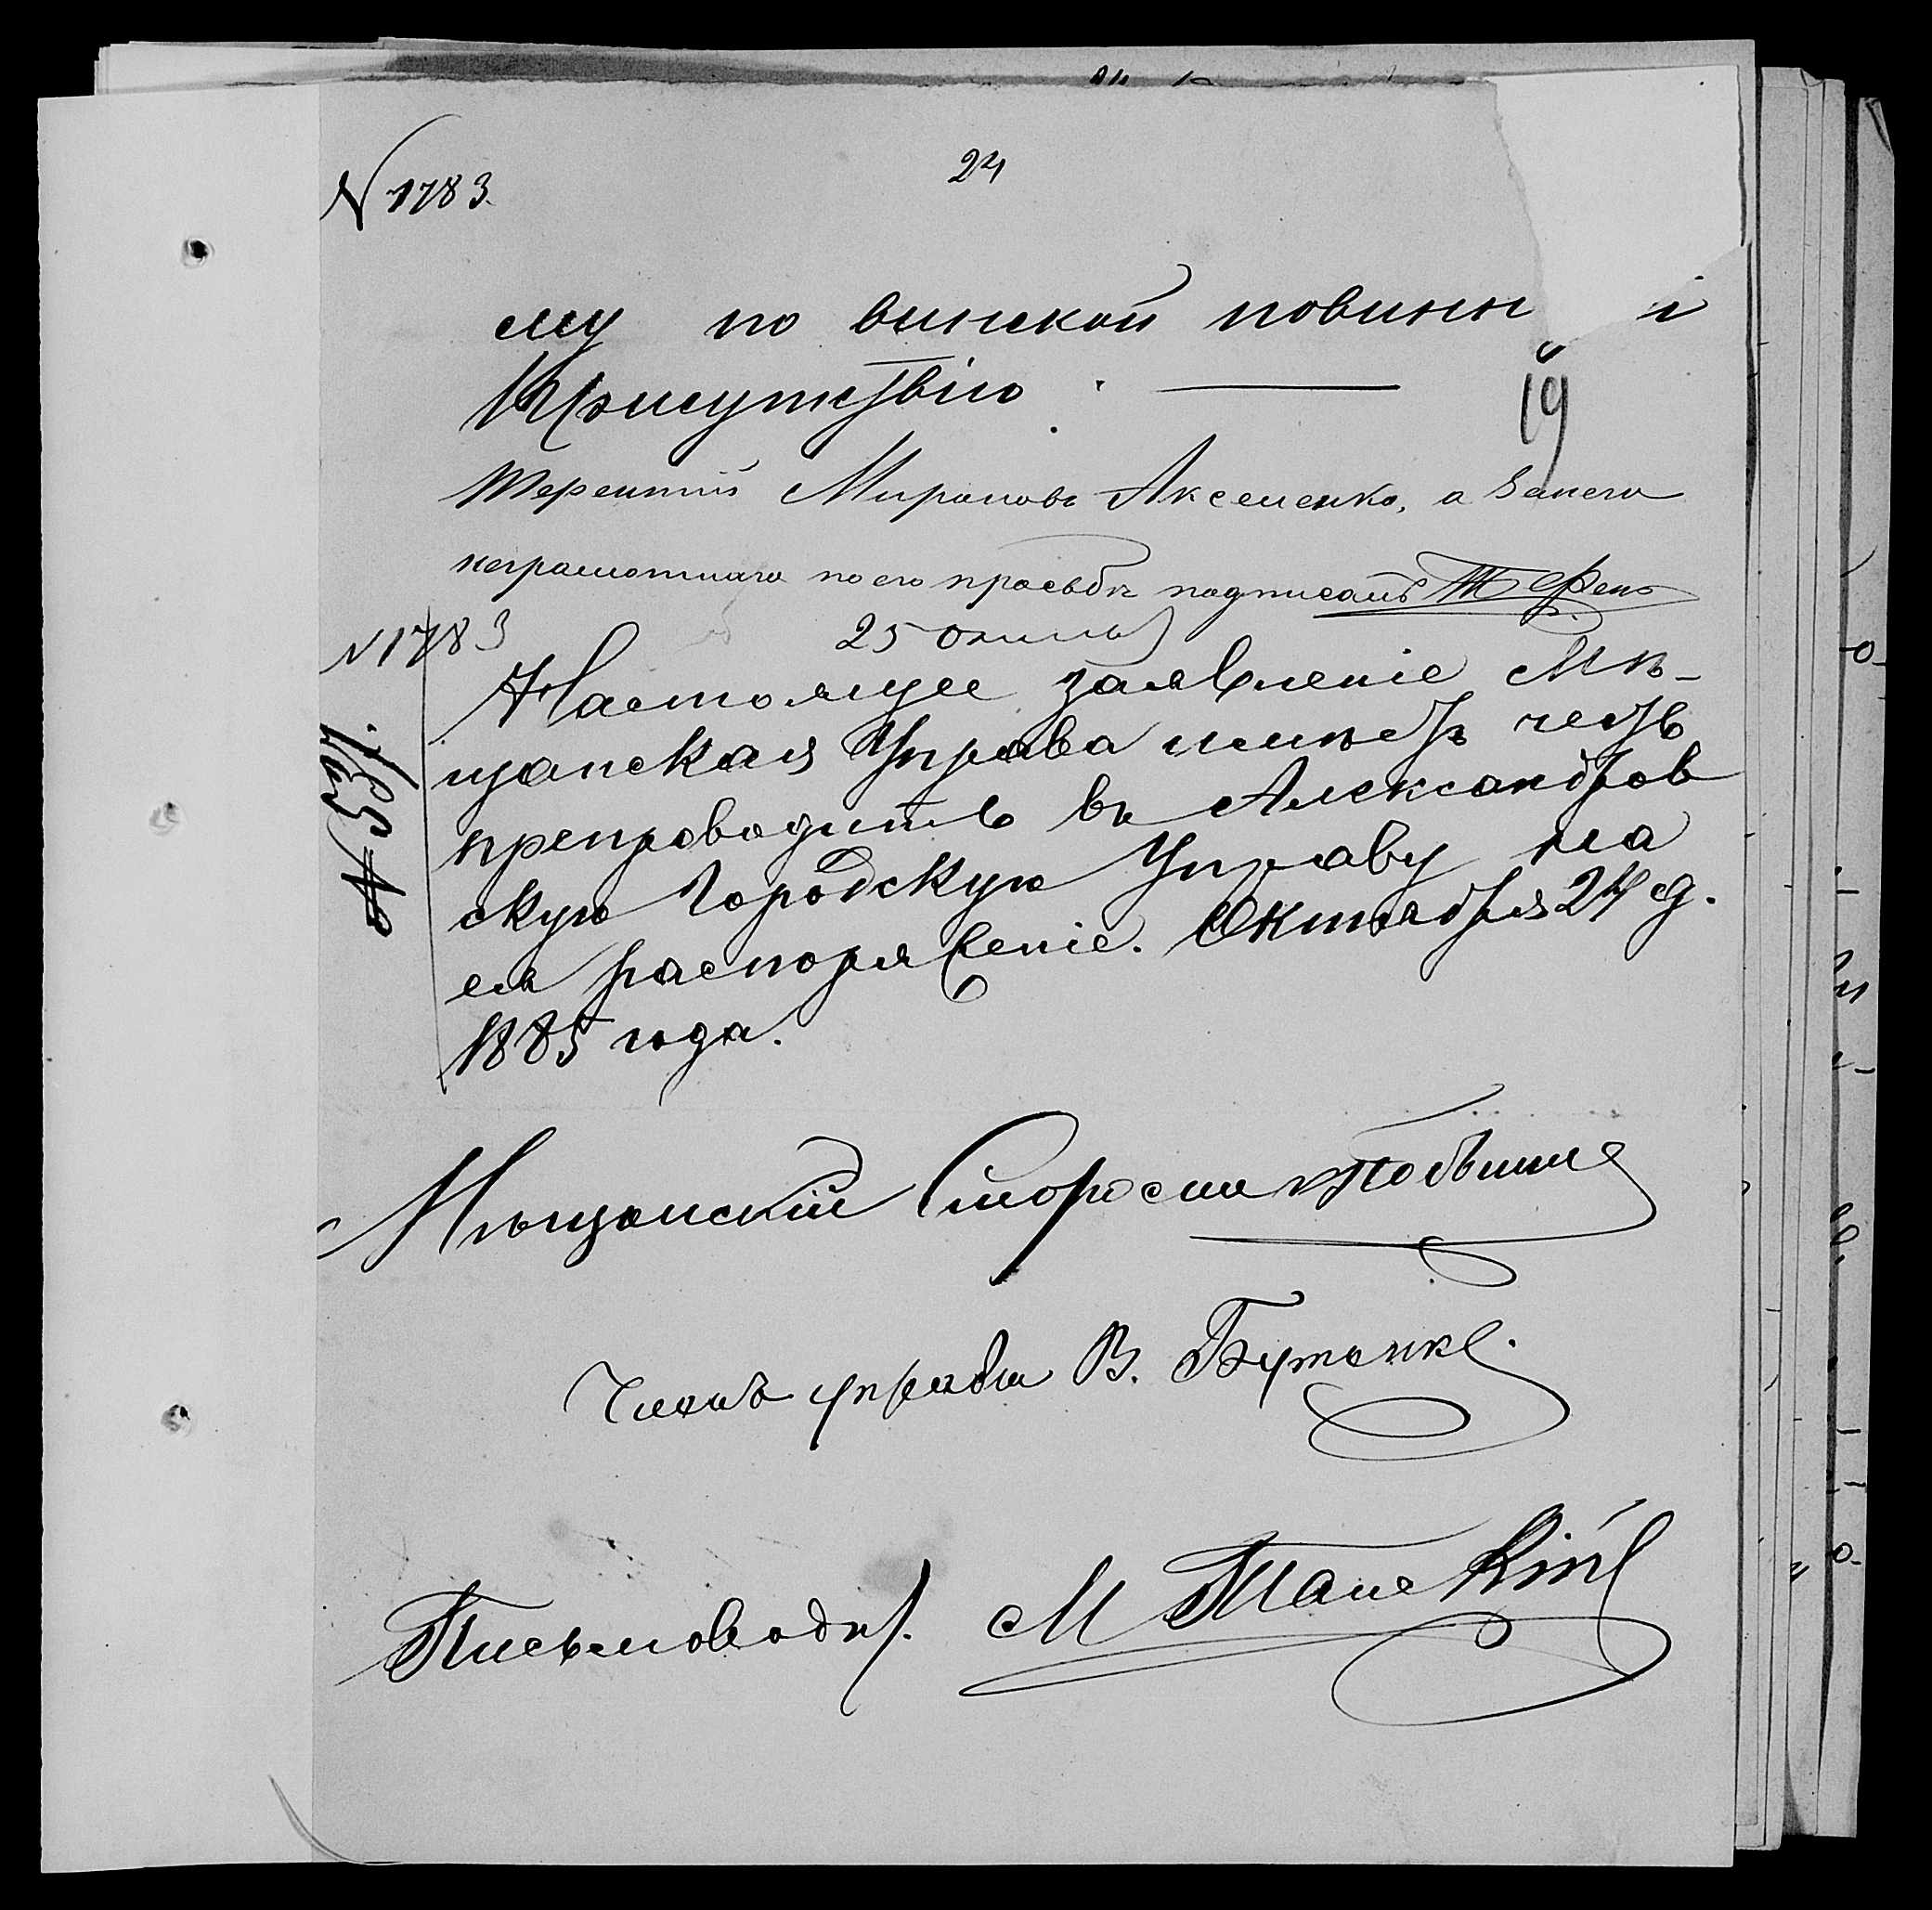 N 1783.
24
ему по винской повинн і
Присутствію.
19
Терентій Мироновъ Аксененко, а занего
неграмотнаго по его просьбѣ подписалъ
N 1783
25 Октяб
Настоящее заявленіе Мѣ-
щанская Управа имѣетъ честь
препроводить въ Александров
скую Городскую Управу на
ея распоряженіе. Октября 24 д.
1885 года.
Мѣщанскій Староста
Членъ управы В. Бутенко.
Письмоводит. М